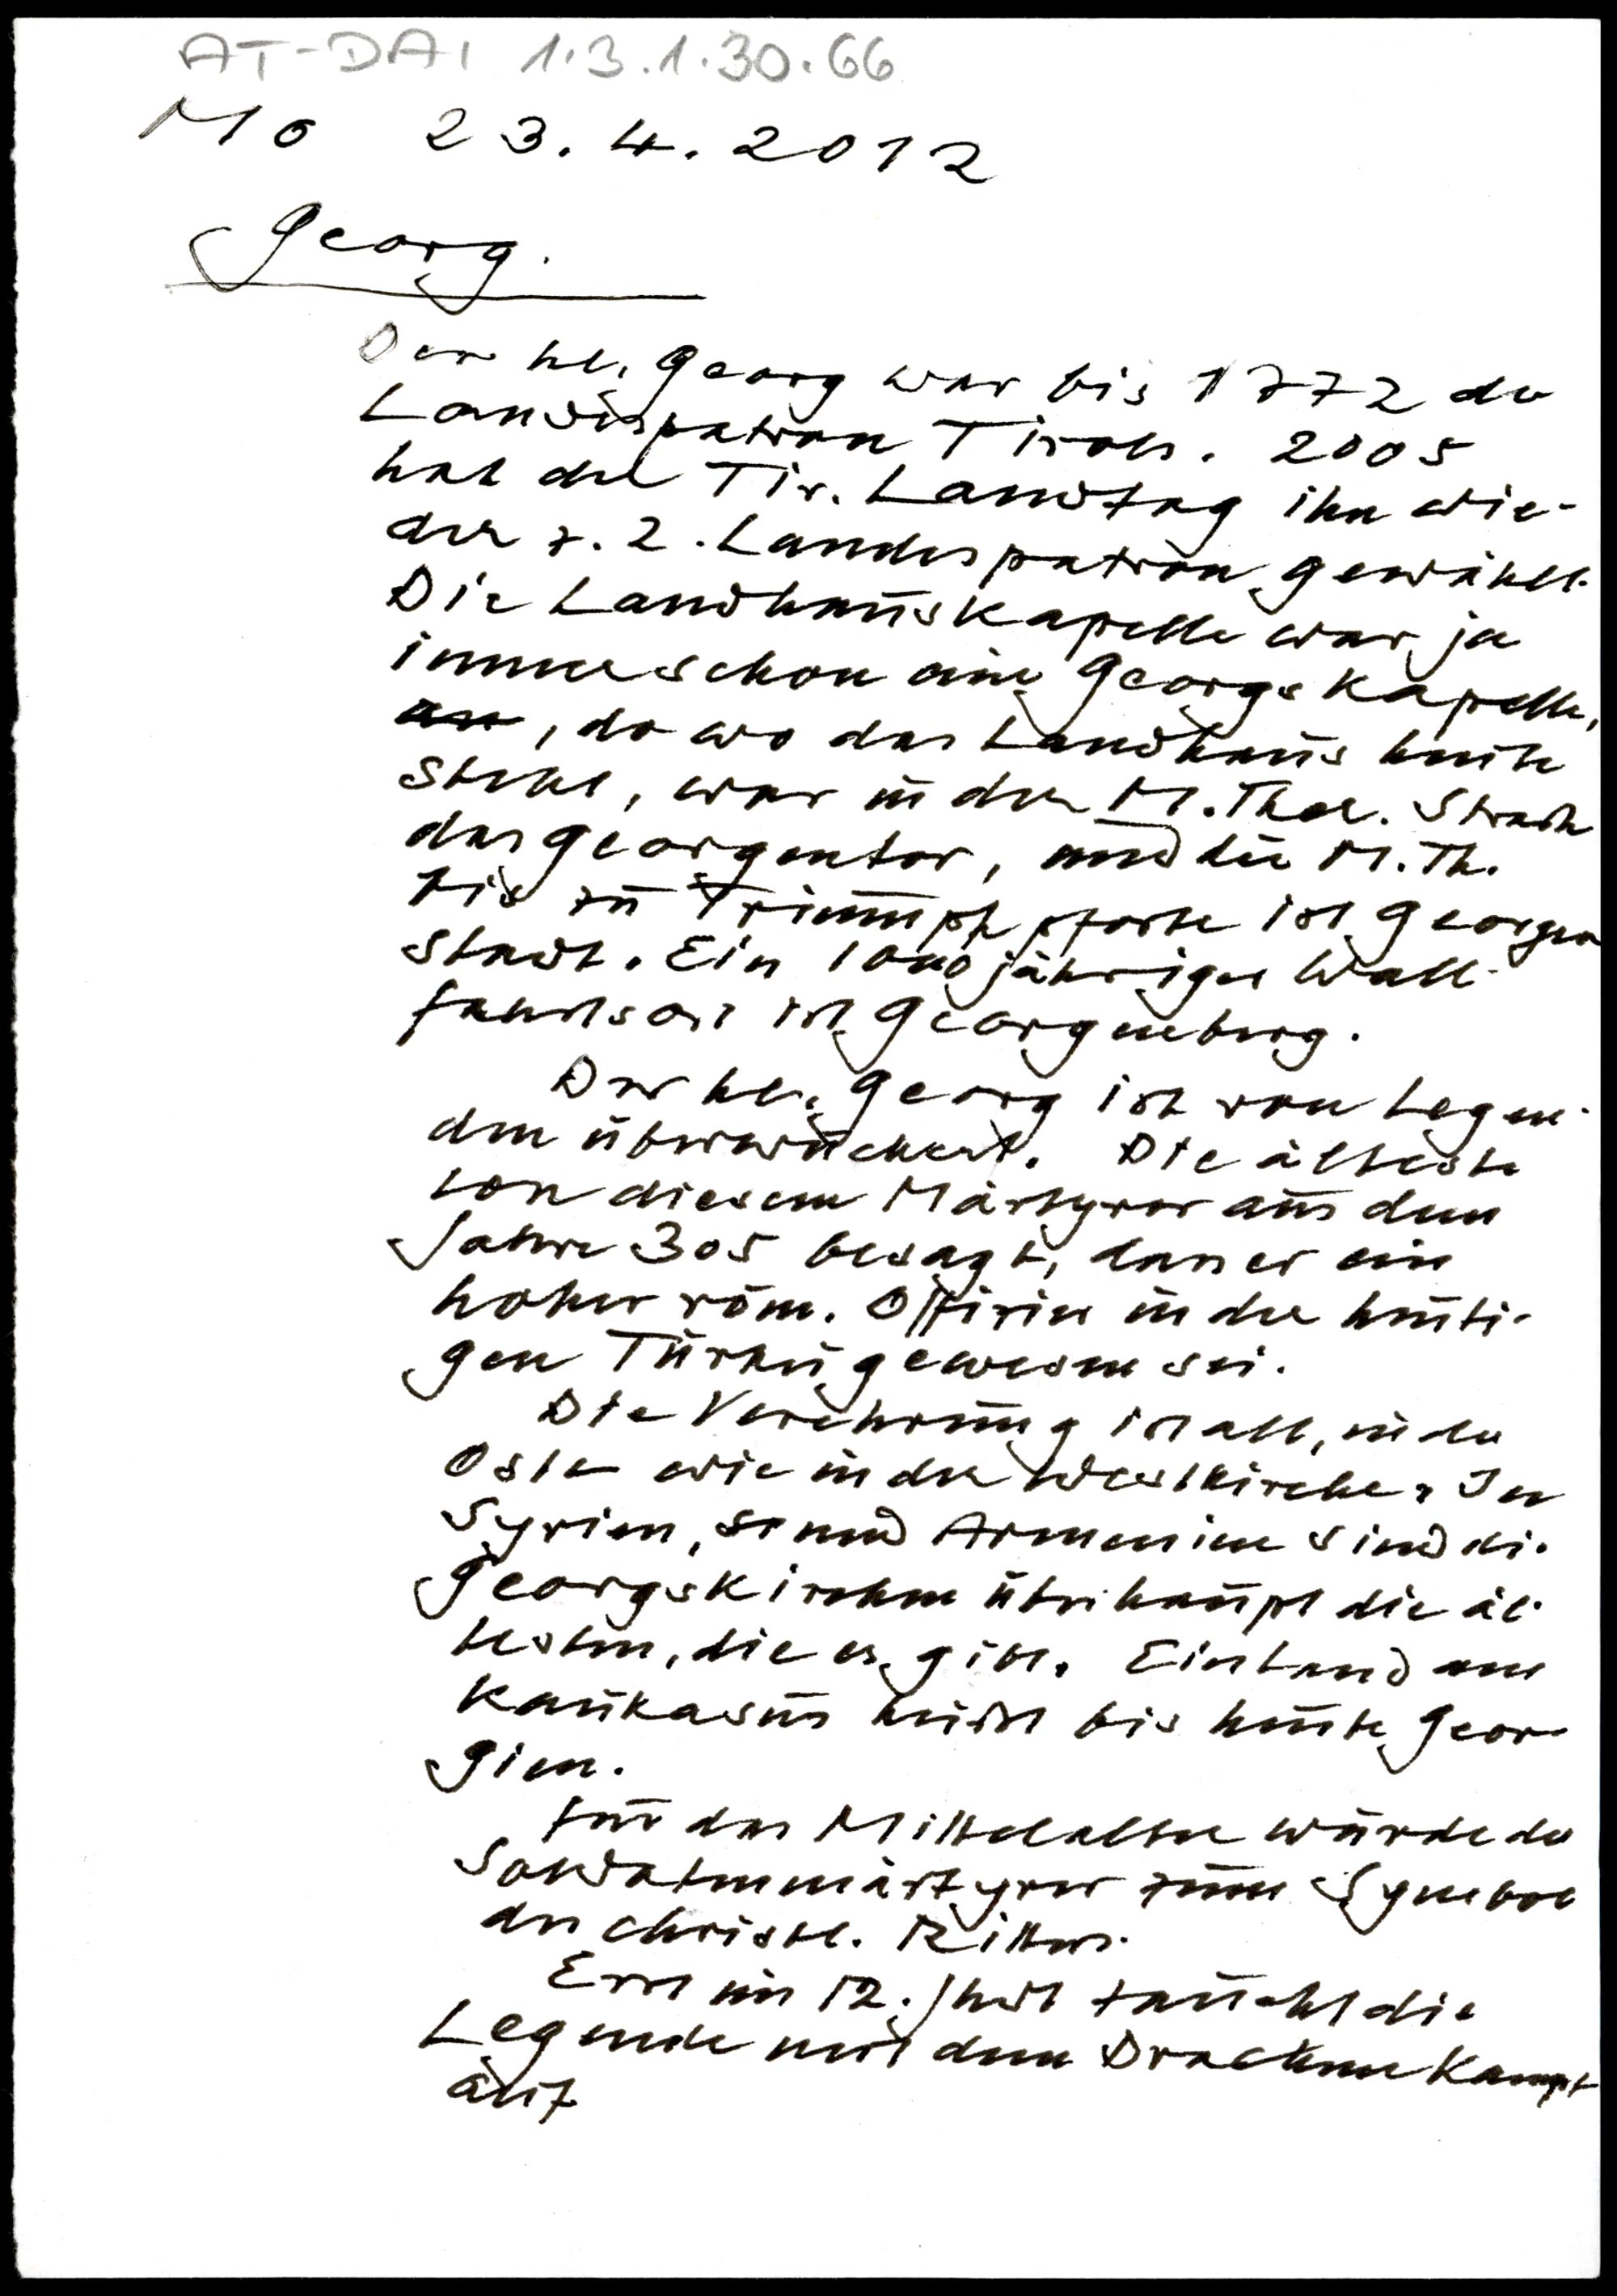 AT-DAI 1.3.1.30.66
Mo 23.4.2012
Georg.
Der hl. Georg war bis 1772 der
Landespatron Tirols. 2005
hat der Tir. Landtag ihn wie-
der z. 2. Landespatron gewählt.
Die Landhauskapelle war ja
immer schon eine Georgskapelle,
, do wo das Landhaus heute
steht, war in der M. Ther. Strasse
das Georgentor, und die M. Th.
bis zu Triumphpforte ist Georgen
stadt. Ein 1000jähriger Wall-
fahrtsort ist Georgenberg.
Der hl. Georg ist von Legen-
den überwuchert. Die älteste
von diesem Märtyrer aus dem
Jahre 305 besagt, dass er ein
hoher röm. Offizier in der heuti-
gen Türkei gewesen sei.
Die Verehrung ist alt, in der
Ost- wie in der Westkirche. In
Syrien, und Armenien sind die
Georgskirchen überhaupt die äl-
testen, die es gibt. Ein Land am
Kaukasus heißt bis heute Geor-
gien.
Für das Mittelalter wurde der
Soldatenmärtyrer zum Symbol
des christl. Ritters.
Erst im 12. Jhdt taucht die
Legende mit dem Drachenkampf
auf